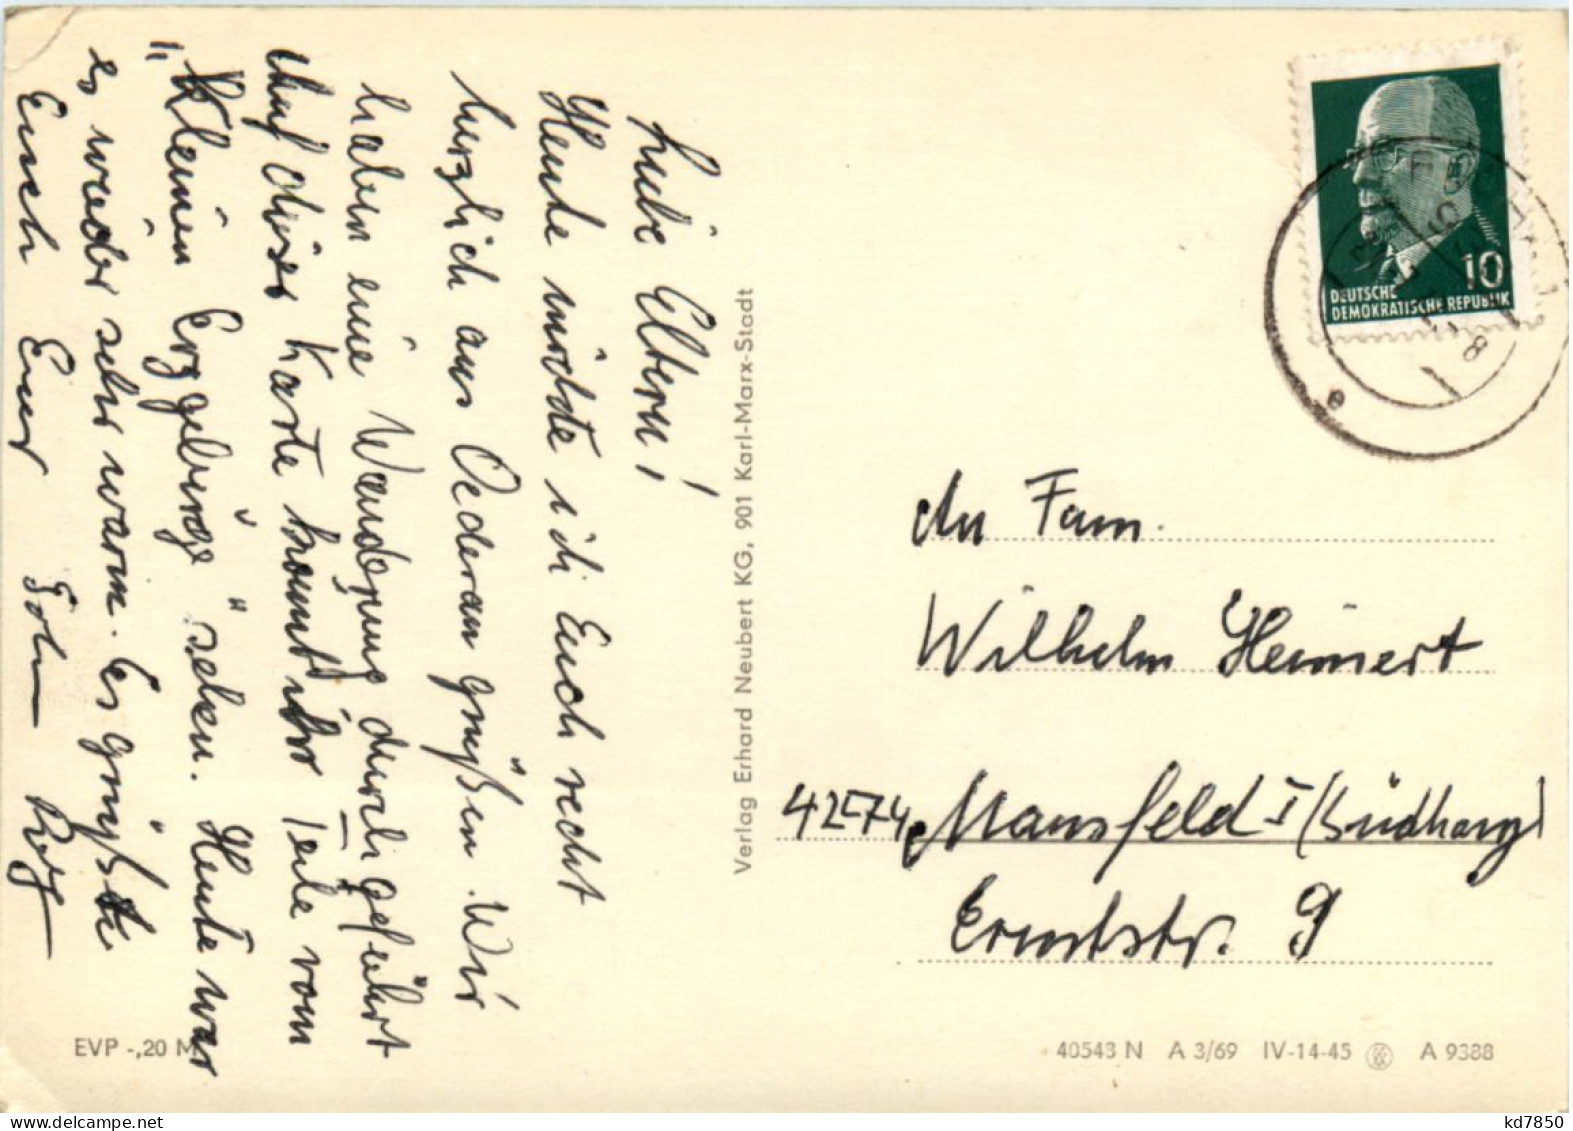 Liebe Eltern!
Heute möchte ich Euch recht
herzlich aus Oederan grüßen. Wir
haben eine Wanderung durchgeführt
Auf dieser Karte könnt ihr Teile vom
„Kleinen Erzgebirge" sehen. Heute war
es wieder sehr warm. Es grüßte
Euch Euer Sohn Rolf
Verlag Erhard Neubert KG, 901 Karl-Marx-Stadt
10
DEUTSCHE
DEMOKRATISCHE REPUBLIK
An Fam.
Wilhelm Heinert
4274 Mansfeld I (Südharz)
Ernststr. 9
EVP -,20 M
40543 N A 3/69 IV-14-45 A 9388
kd7850